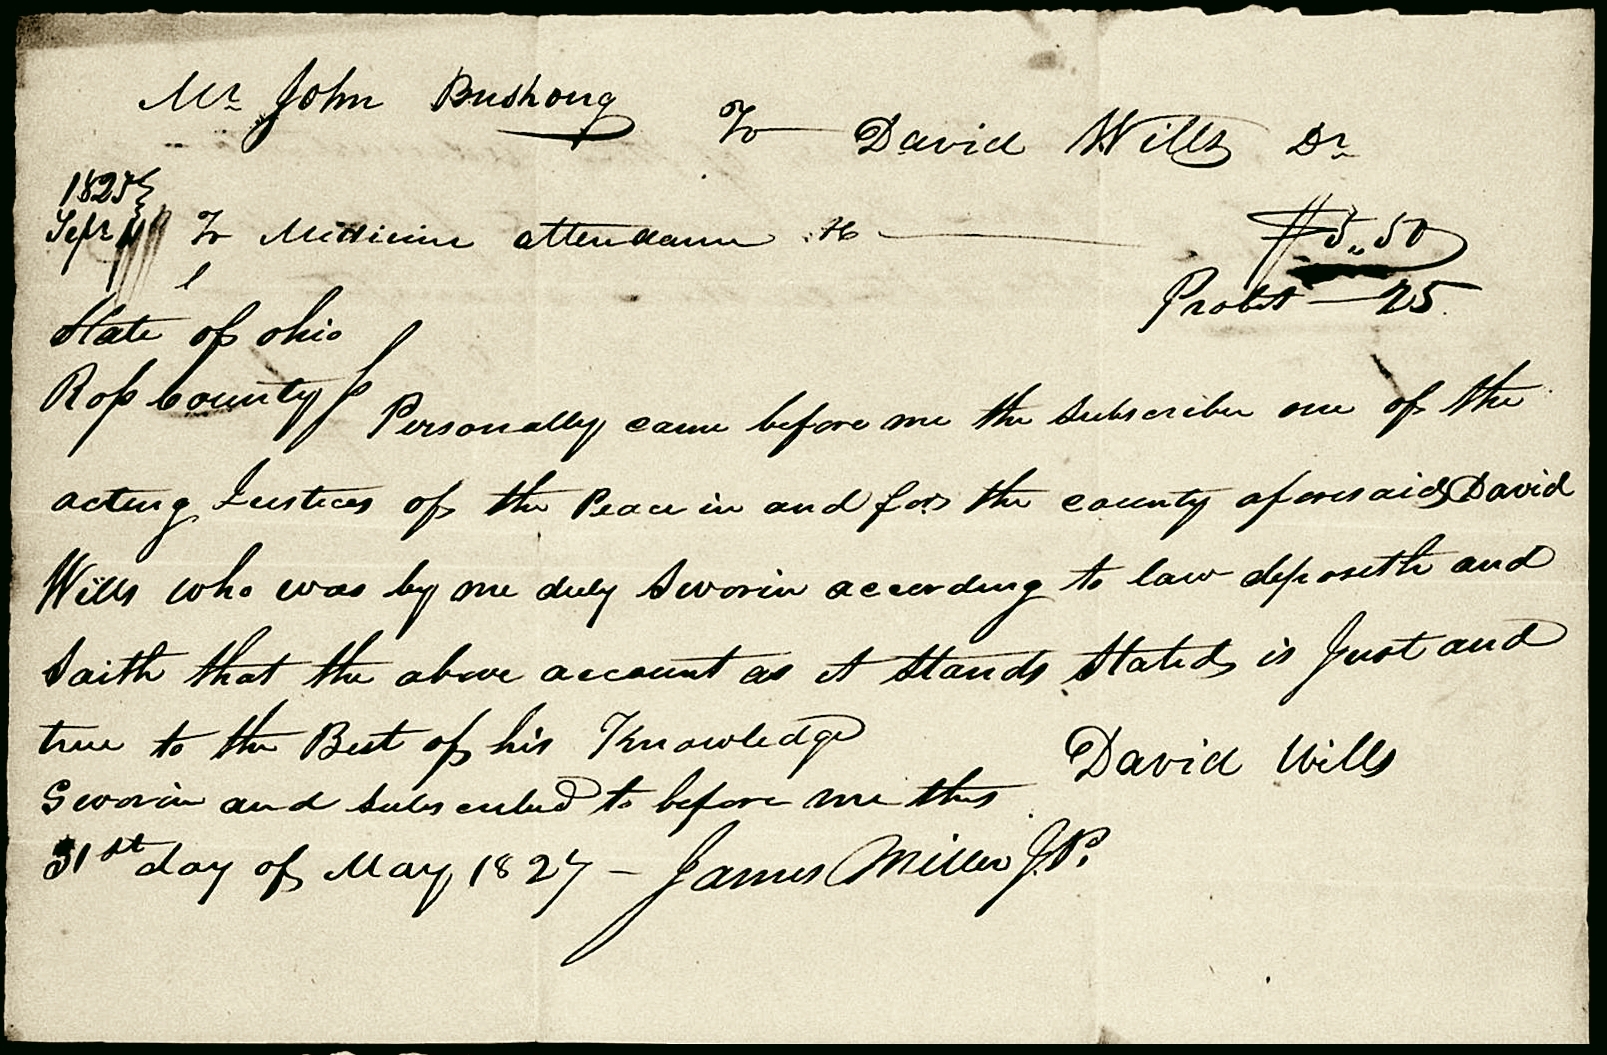 Mr John Bushong To David Wills Dr
1825
Sept To Medicine attendance &c $5,,50
Probt — 25
State of ohio
Ross County ss Personally came before me the Subscriber one of the
acting Justices of the Peace in and for the county aforesaid David
Wills who was by me duly Sworin according to law deposeth and
Saith that the above account as it Stands Stated is Just and
true to the Best of his Knowledge
David Wills
Sworin and Subscribed to before me this
31st day of May 1827 — James Miller J.P.